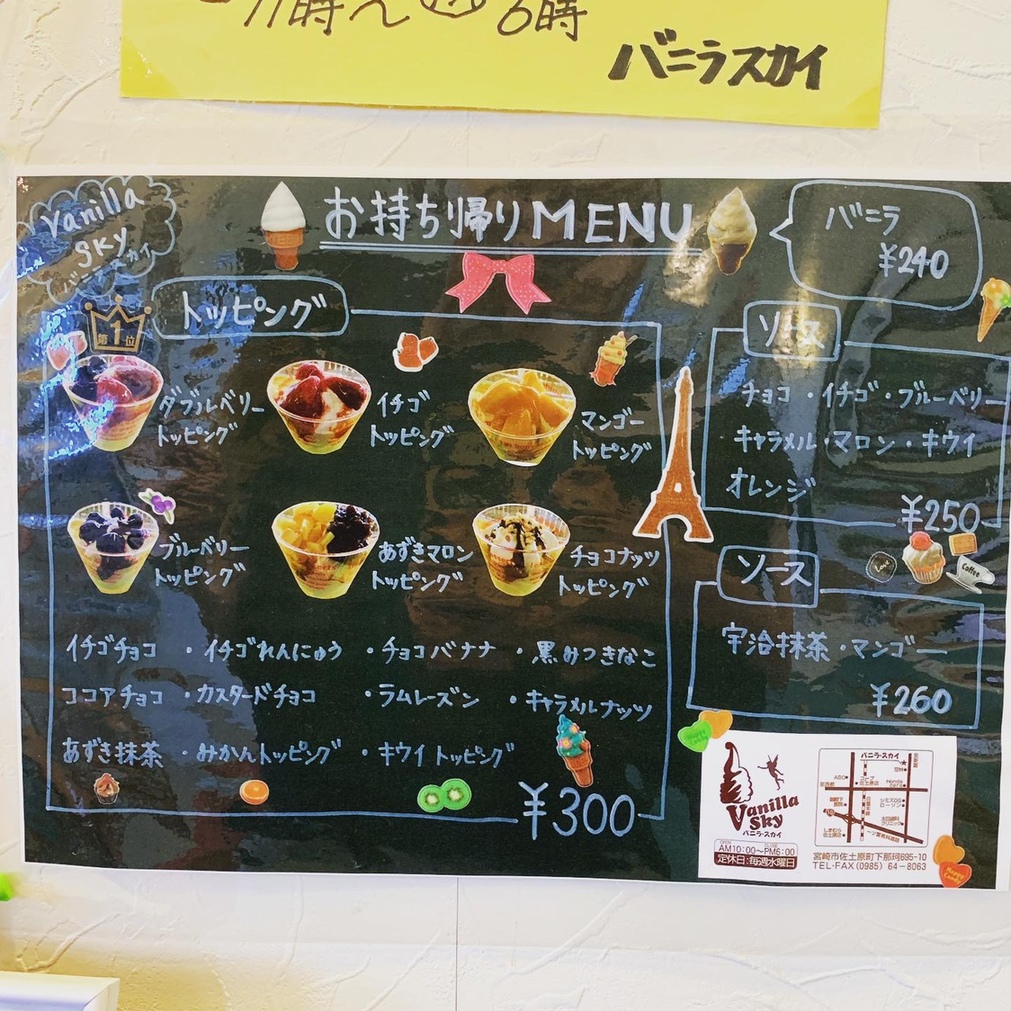 11時〜 6時
バニラスカイ
Vanilla
Sky
バニラスカイ
お持ち帰りMENU
バニラ
¥240
トッピング
第1位
ダブルベリー
トッピング
イチゴ
トッピング
マンゴー
トッピング
ブルーベリー
トッピング
あずきマロン
トッピング
チョコナッツ
トッピング
イチゴチョコ ・イチゴれんにゅう ・チョコバナナ ・黒みつきなこ
ココアチョコ ・カスタードチョコ ・ラムレーズン ・キャラメルナッツ
あずき抹茶 ・みかんトッピング ・キウイトッピング
¥300
ソース
チョコ・イチゴ・ブルーベリー
キャラメル・マロン・キウイ
オレンジ
¥250
Love
Coffee
ソース
宇治抹茶・マンゴー
¥260
Happy Candy
Vanilla
Sky
バニラ・スカイ
AM10:00〜PM6:00
定休日:毎週水曜日
バニラ・スカイ
宮崎市佐土原町下那珂695-10
TEL・FAX(0985)64-8063
Happy Candy